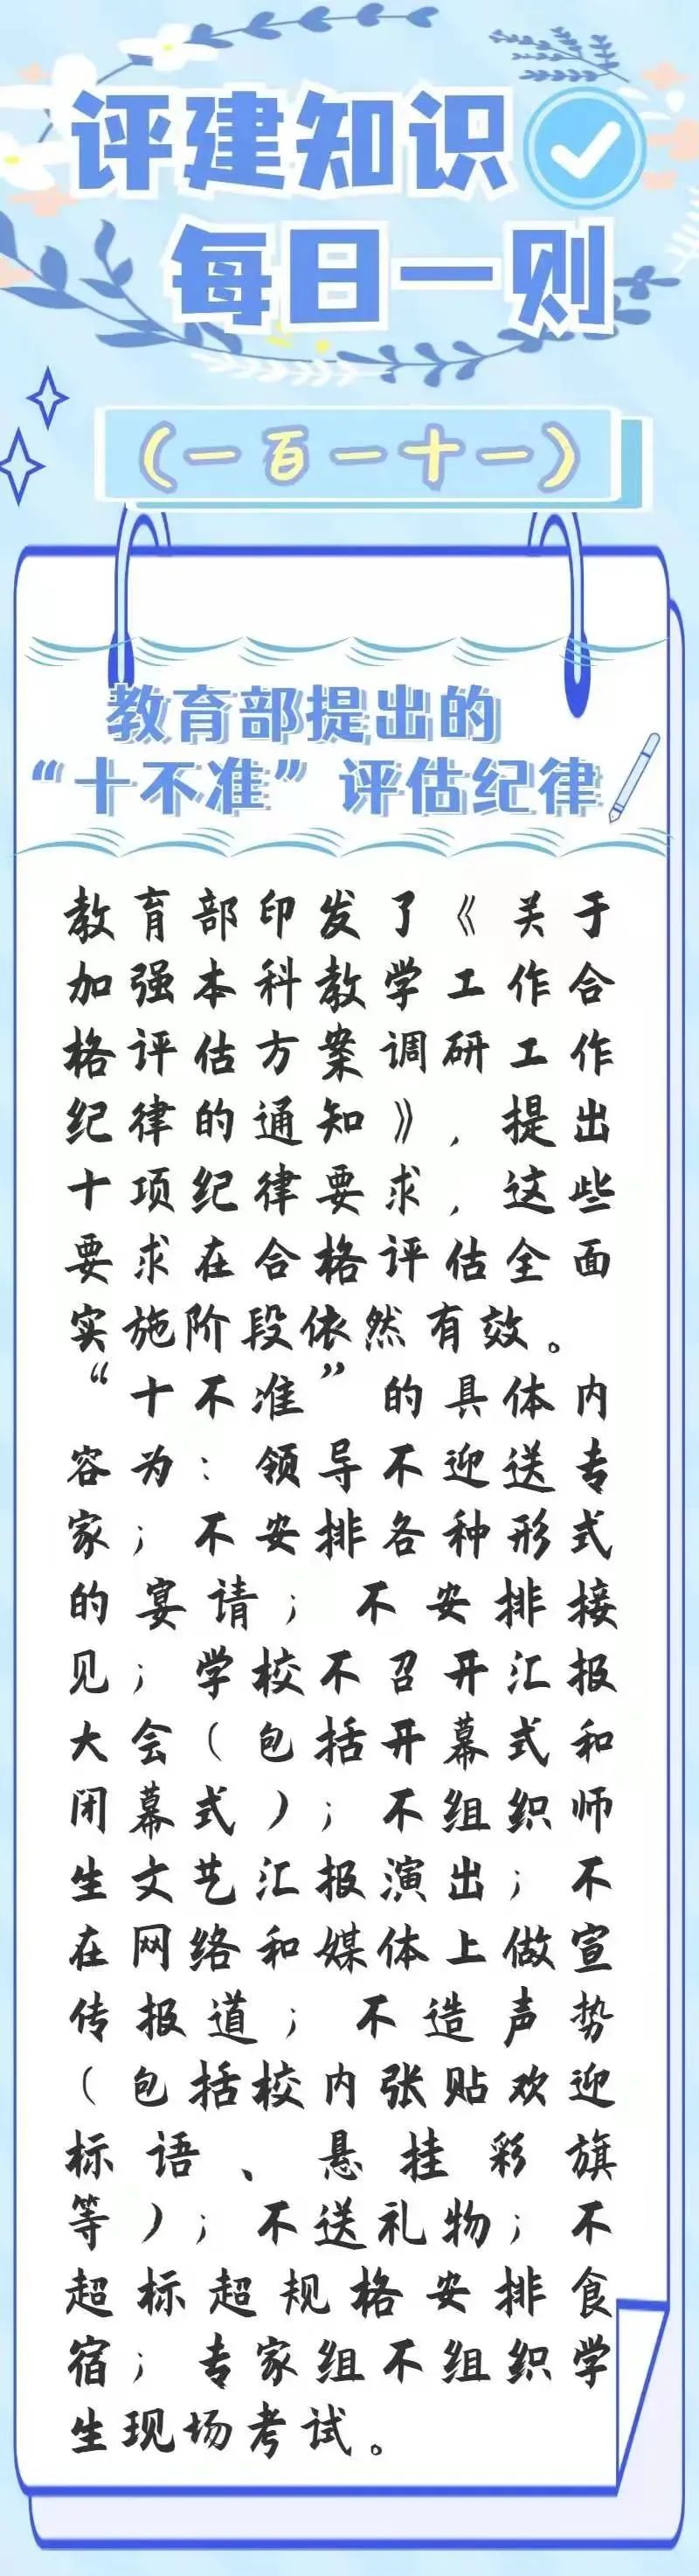 评建知识
每日一则
（一百一十一）
教育部提出的
“十不准”评估纪律
教育部印发了《关于
加强本科教学工作合
格评估方案调研工作
纪律的通知》，提出
十项纪律要求，这些
要求在合格评估全面
实施阶段依然有效。
“十不准”的具体内
容为：领导不迎送专
家；不安排各种形式
的宴请；不安排接
见；学校不召开汇报
大会（包括开幕式和
闭幕式）；不组织师
生文艺汇报演出；不
在网络和媒体上做宣
传报道；不造声势
（包括校内张贴欢迎
标语、悬挂彩旗
等）；不送礼物；不
超标超规格安排食
宿；专家组不组织学
生现场考试。